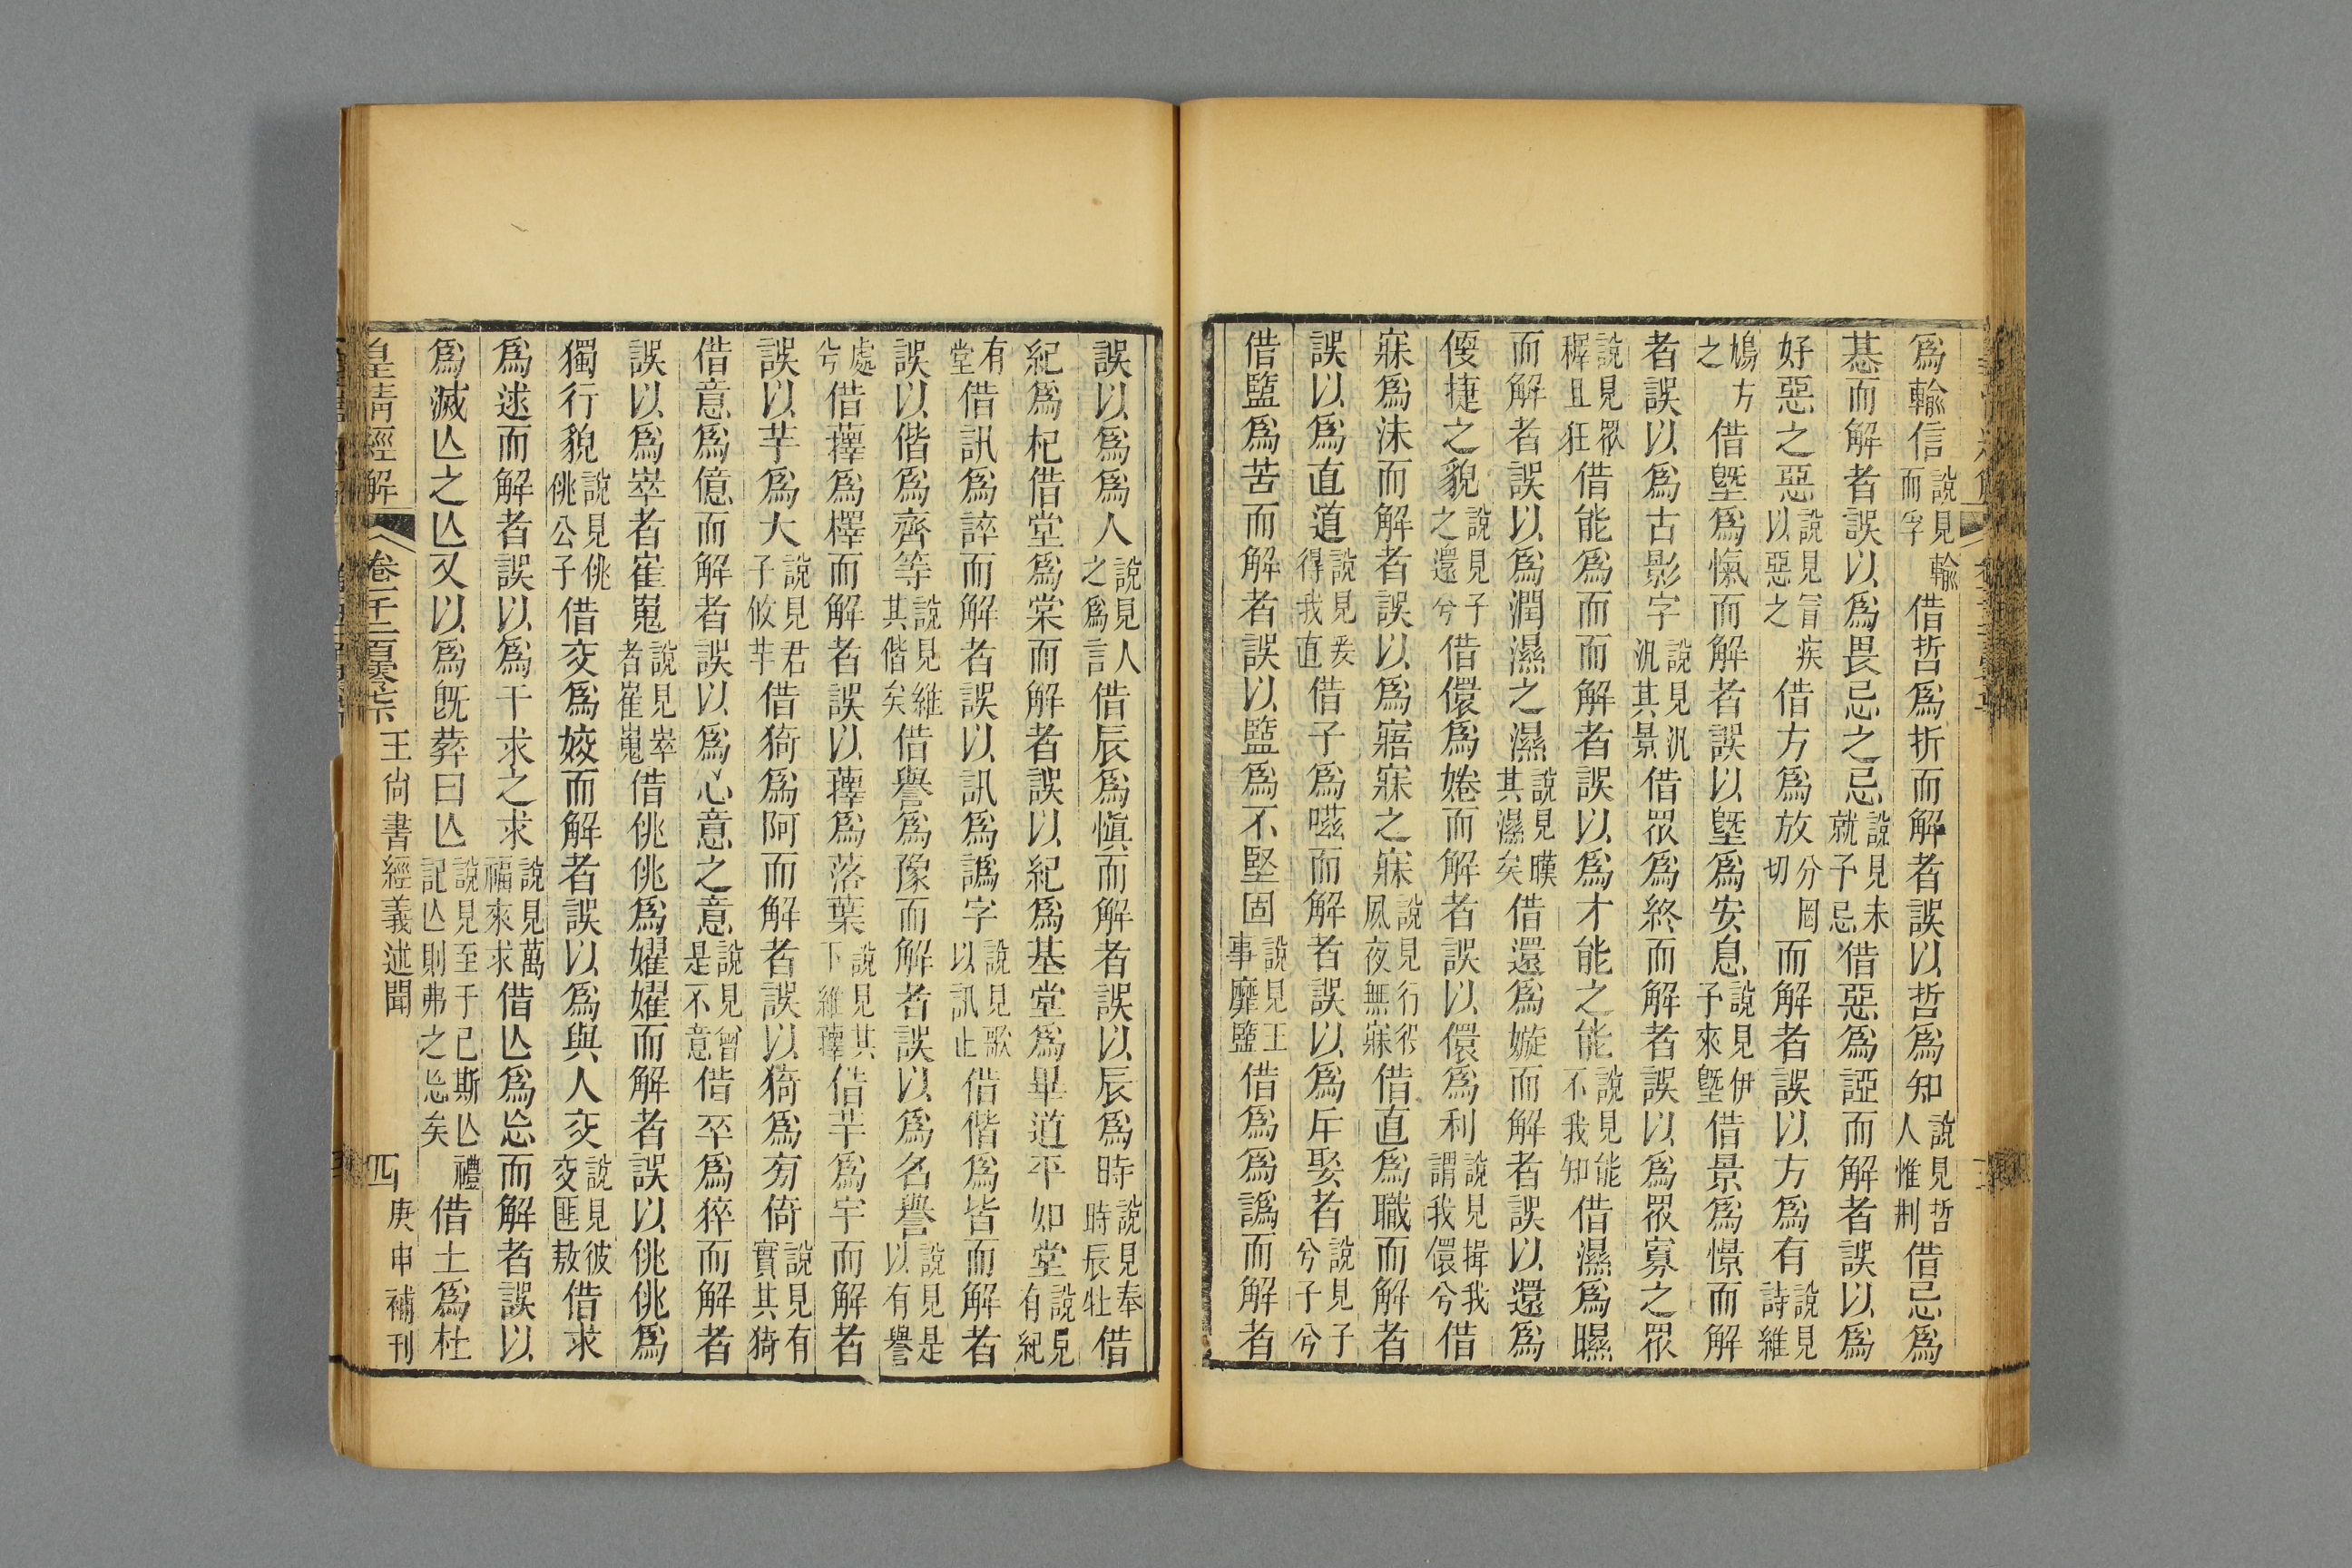 爲輸信說見輸而孚借哲爲折而解者誤以哲爲知說見哲人惟刑借忌爲
惎而解者誤以爲畏忌之忌說見未就予忌借惡爲諲而解者誤以爲
好惡之惡說見冒疾以惡之借方爲放分岡切而解者誤以方爲有說見詩維
鳩方之借墍爲愾而解者誤以墍爲安息說見伊予來墍借景爲憬而解
者誤以爲古影字說見汎汎其景借眾爲終而解者誤以爲眾寡之眾
說見眾穉且狂借能爲而而解者誤以爲才能之能說見能不我知借濕爲㬤
而解者誤以爲潤濕之濕說見暵其濕矣借還爲嫙而解者誤以還爲
便捷之貌說見子之還兮借儇爲婘而解者誤以儇爲利說見揖我謂我儇兮借
寐爲沬而解者誤以爲寤寐之寐說見行役夙夜無寐借直爲職而解者
誤以爲直道說見爰得我直借子爲嗞而解者誤以爲斥娶者說見子兮子兮
借盬爲苦而解者誤以盬爲不堅固說見王事靡盬借爲爲譌而解者
誤以爲爲人說見人之爲言借辰爲愼而解者誤以辰爲時說見奉時辰牡借
紀爲杞借堂爲棠而解者誤以紀爲基堂爲畢道平如堂說見有紀
有堂借訊爲誶而解者誤以訊爲譌字說見歌以訊止借偕爲皆而解者
誤以偕爲齊等說見維其偕矣借譽爲豫而解者誤以爲名譽說見是以有譽
處兮借蘀爲檡而解者誤以蘀爲落葉說見其下維蘀借芋爲宇而解者
誤以芋爲大說見君子攸芋借猗爲阿而解者誤以猗爲㫄倚說見有實其猗
借意爲億而解者誤以爲心意之意說見曾是不意借卒爲猝而解者
誤以爲崒者崔嵬說見崒者崔嵬借佻佻爲嬥嬥而解者誤以佻佻爲
獨行貌說見佻佻公子借交爲姣而解者誤以爲與人交說見彼交匪敖借求
爲逑而解者誤以爲干求之求說見萬福來求借亾爲忘而解者誤以
爲滅亾之亾又以爲旣葬曰亾說見至于已斯亾禮記亾則弗之忘矣借土爲杜
皇淸經解
卷一千二百零七下
王尙書經義述聞
四
庚申補刊